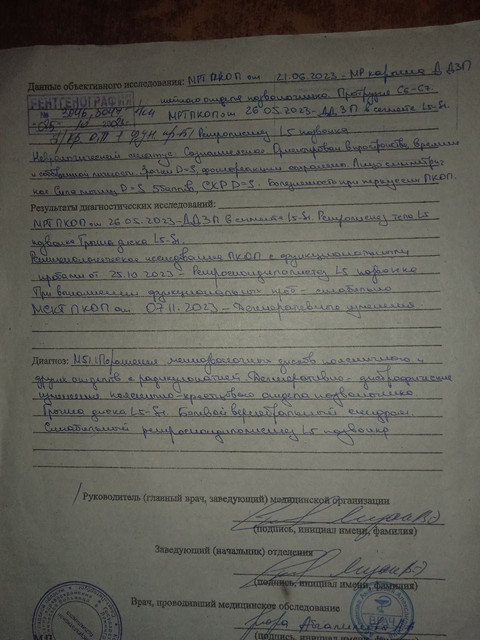 Данные объективного исследования: МРТ ПКОП от 21.06.2023 - МР картина ДДЗП
РЕНТГЕНОГРАФИЯ шейного отдела позвоночника. Протрузия С6-С7
МРТ ПКОП от 26.05.2023 - ДДЗП в сегменте L5-S1.
Ретролистез L5 позвонка
Неврологический статус: Ориентирован в пространстве, времени
и собственной личности. Зрачки D=S, сохранена. Лицо симметрич
ное. Сила мышц D=S 5 баллов, СХР D=S. Болезненность при перкуссии ПКОП.
Результаты диагностических исследований:
МРТ ПКОП от 26.05.2023 - ДДЗП в сегменте L5-S1. тела L5
позвонка Грыжа диска L5-S1.
Рентгенологическое исследование ПКОП с функциональными
пробами от 25.10.2023 - Ретроспондилолистез L5 позвонка
При выполнении функциональных - стабильно
МСКТ ПКОП от 07.11.2023 - Дегенеративные изменения
Диагноз: Поражения межпозвоночных дисков поясничного и
других отделов с радикулопатией Дегенеративно-дистрофические
изменения пояснично-крестцового отдела позвоночника
Грыжа диска L5-S1. Болевой вертебральный синдром.
Стабильный ретроспондилолистез L5 позвонка
Руководитель (главный врач, заведующий) медицинской организации
(подпись, инициал имени, фамилия)
Заведующий (начальник) отделения
(подпись, инициал имени, фамилия)
Врач, проводивший медицинское обследование
(подпись, инициал имени, фамилия)
ВРАЧ
М.П.